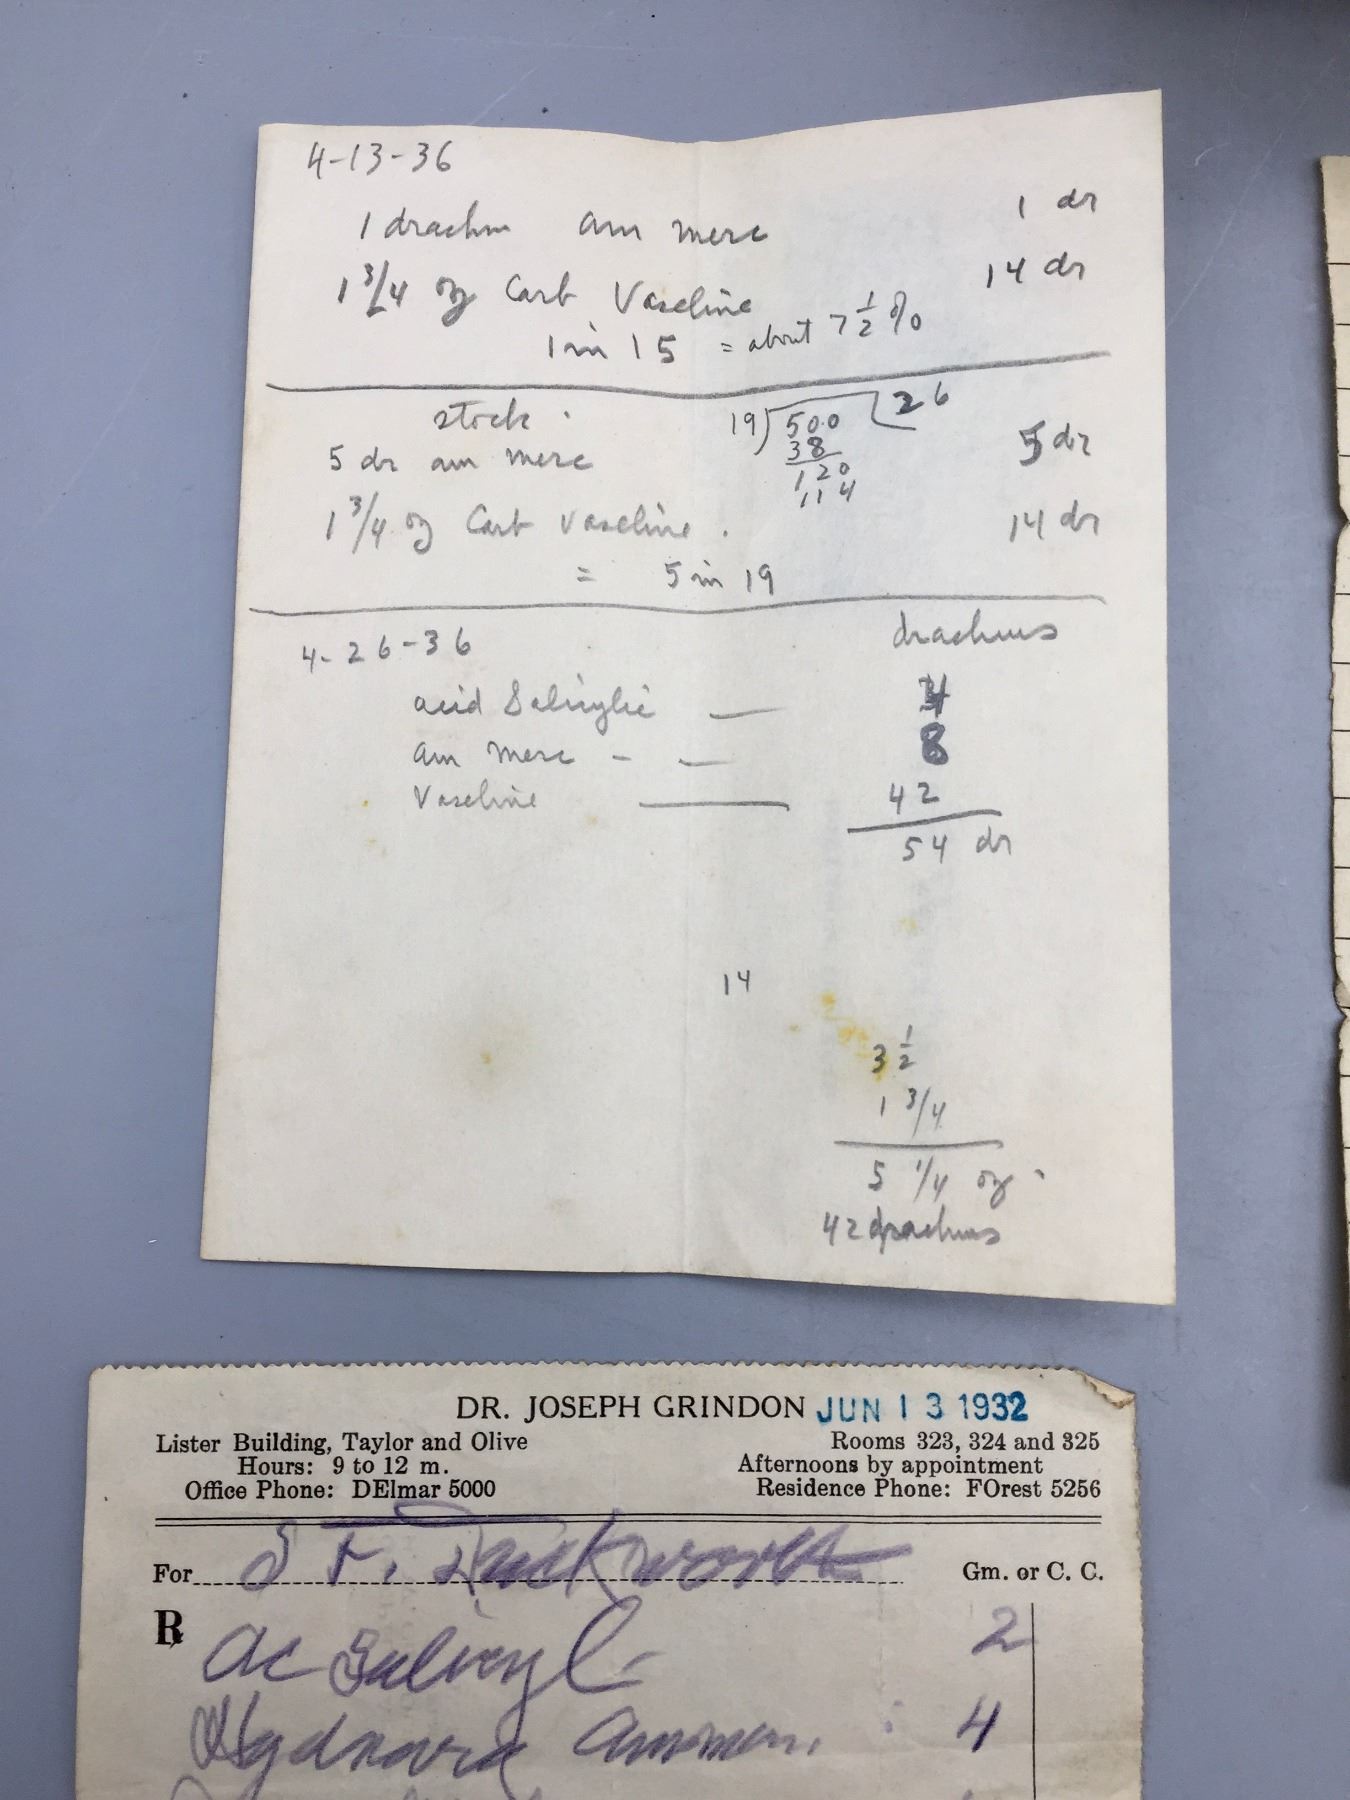 4-13-36
1 drachm am merc 1 dr
1 3/4 oz Carb Vaseline 14 dr
1 in 15 = about 7 1/2 %
stock.
19)500 26
5 dr am merc 38 5 dr
120
114
1 3/4 oz Carb Vaseline. 14 dr
= 5 in 19
4-26-36 drachms
acid Salicylic — 4
am merc - — 8
Vaseline — 42
54 dr
14
3 1/2
1 3/4
5 1/4 oz.
42 drachms
DR. JOSEPH GRINDON JUN 13 1932
Lister Building, Taylor and Olive Rooms 323, 324 and 325
Hours: 9 to 12 m. Afternoons by appointment
Office Phone: DElmar 5000 Residence Phone: FOrest 5256
For Duckworth Gm. or C. C.
℞ Ac Salicyl. 2
Hydrarg Ammon. 4